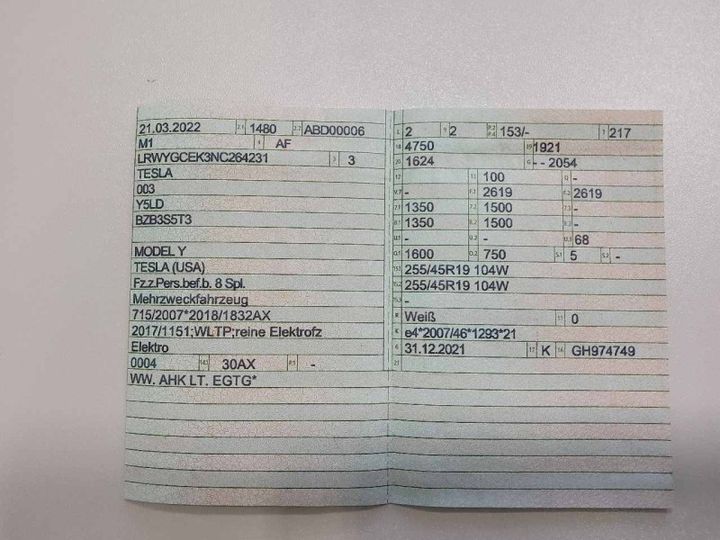 21.03.2022 2.1 1480 2.2 ABD00006
M1 4 AF
LRWYGCEK3NC264231 3 3
TESLA
003
Y5LD
BZB3S5T3
MODEL Y
TESLA (USA)
Fz.z.Pers.bef.b. 8 Spl.
Mehrzweckfahrzeug
715/2007*2018/1832AX
2017/1151;WLTP;reine Elektrofz
Elektro
0004 14.1 30AX P.1 -
WW. AHK LT. EGTG*
L 2 9 2 P.2 P.4 153/- T 217
18 4750 19 1921
20 1624 G - - 2054
12 - 13 100 Q -
V.7 - F.1 2619 F.2 2619
7.1 1350 7.2 1500 7.3 -
8.1 1350 8.2 1500 8.3 -
U.1 - U.2 - U.3 68
O.1 1600 O.2 750 S.1 5 S.2 -
15.1 255/45R19 104W
15.2 255/45R19 104W
15.3 -
R Weiß 11 0
K e4*2007/46*1293*21
6 31.12.2021 17 K 16 GH974749
21